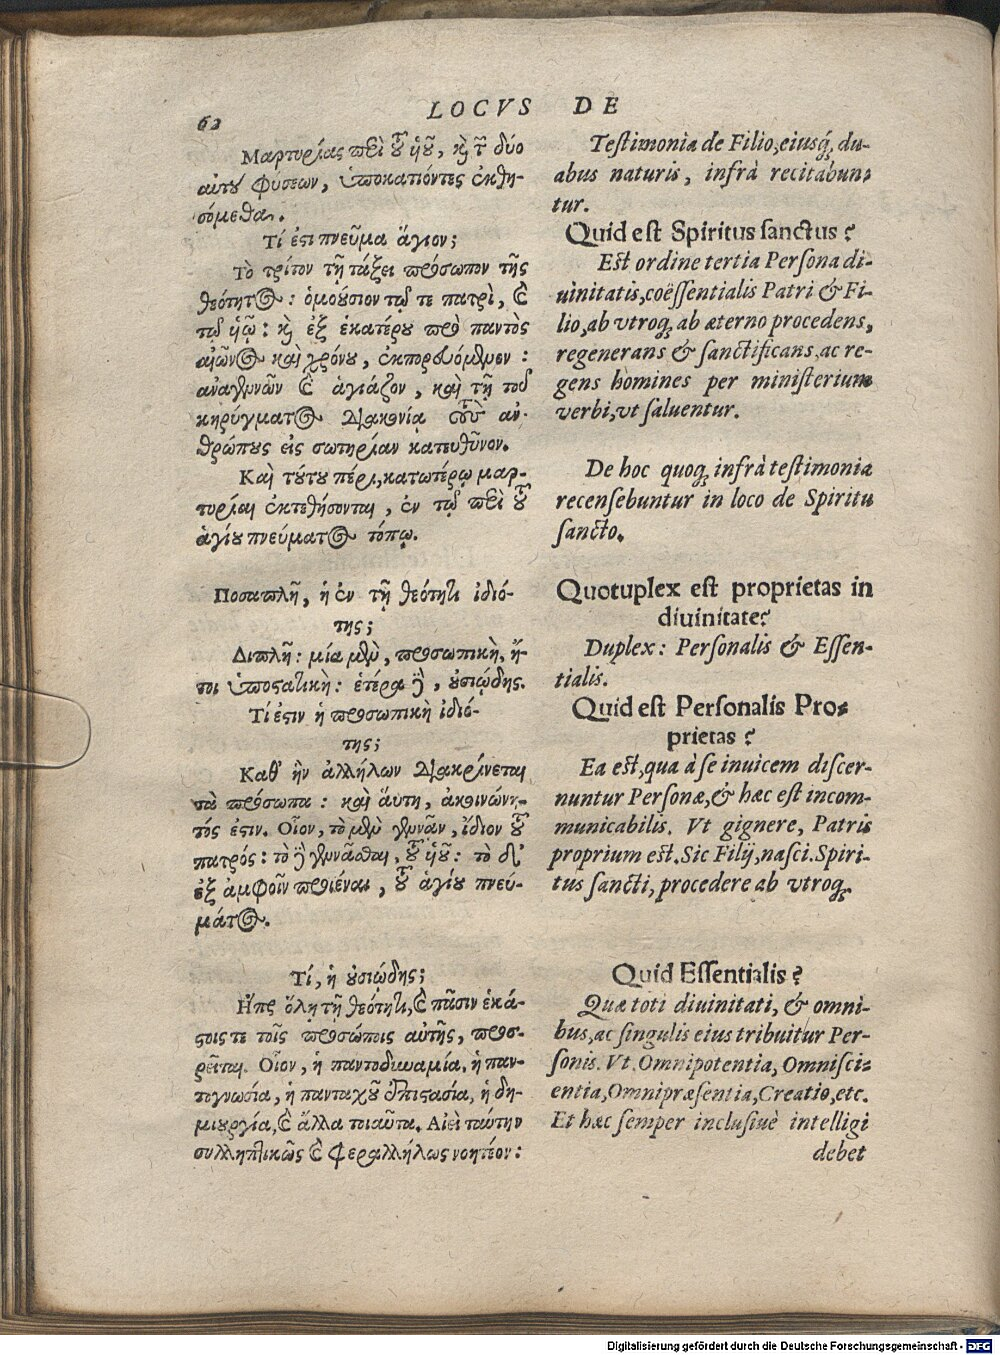 62
LOCVS DE
Μαρτυρίας περὶ τοῦ ὑοῦ, κὴ τῶν δύο
αὐτοῦ φύσεων, ὑποκατιόντες ἐκθη-
σόμεθα.
Τί ἐστι πνεῦμα ἅγιον;
Τὸ τρίτον τῇ τάξει πρόσωπον τῆς
θεότητος: ὁμοούσιον τῷ τε πατρὶ, καὶ
τῷ ὑῷ: καὶ ἐξ ἑκατέρου πρὸ παντὸς
αἰῶνος καὶ χρόνου, ἐκπορευόμενον:
ἀναγεννῶν καὶ ἁγιάζον, καὶ τῇ τοῦ
κηρύγματος διακονίᾳ τοὺς ἀν-
θρώπους εἰς σωτηρίαν κατευθῦνον.
Καὶ τούτου πέρι, κατωτέρω μαρ-
τυρίαι ἐκτεθήσονται, ἐν τῷ περὶ τοῦ
ἁγίου πνεύματος τόπῳ.
Ποσαπλῆ, ἡ ἐν τῇ θεότητι ἰδιό-
της;
Διπλῆ: μία μὲν, προσωπικὴ, ἤ-
τοι ὑποστατικὴ: ἑτέρα δὲ, οὐσιώδης.
Τί ἐστιν ἡ προσωπικὴ ἰδιό-
της;
Καθ' ἣν ἀλλήλων διακρίνεται
τὰ πρόσωπα: καὶ αὕτη, ἀκοινώνη-
τός ἐστιν. Οἷον, τὸ μὲν γεννᾶν, ἴδιον τοῦ
πατρός: τὸ δὲ γεννᾶσθαι, τοῦ ὑοῦ: τὸ δ'
ἐξ ἀμφοῖν προϊέναι, τοῦ ἁγίου πνεύ-
ματος.
Τί, ἡ οὐσιώδης;
Ἥτις ὅλῃ τῇ θεότητι, καὶ πᾶσιν ἑκά-
στοις τε τοῖς προσώποις αὐτῆς, προσ-
ρεῖται. Οἷον, ἡ παντοδυναμία, ἡ παν-
τογνωσία, ἡ πανταχοῦ ἐπιστασία, ἡ δη-
μιουργία, καὶ ἄλλα τοιαῦτα. Αἰεὶ ταύτην
συλληπτικῶς καὶ φεραλλήλως νοητέον:
Testimonia de Filio, eiusq́; du-
abus naturis, infrà recitabun-
tur.
Quid est Spiritus sanctus?
Est ordine tertia Persona di-
uinitatis, coëssentialis Patri & Fi-
lio, ab vtroq; ab æterno procedens,
regenerans & sanctificans, ac re-
gens homines per ministerium
verbi, vt saluentur.
De hoc quoq; infrà testimonia
recensebuntur in loco de Spiritu
sancto.
Quotuplex est proprietas in
diuinitate?
Duplex: Personalis & Essen-
tialis.
Quid est Personalis Pro-
prietas?
Ea est, qua à se inuicem discer-
nuntur Personæ, & hæc est incom-
municabilis. Vt gignere, Patris
proprium est. Sic Filij, nasci. Spiri-
tus sancti, procedere ab vtroq;.
Quid Essentialis?
Quæ toti diuinitati, & omni-
bus, ac singulis eius tribuitur Per-
sonis. Vt Omnipotentia, Omnisci-
entia, Omnipræsentia, Creatio, etc.
Et hæc semper inclusiuè intelligi
debet
Digitalisierung gefördert durch die Deutsche Forschungsgemeinschaft - DFG